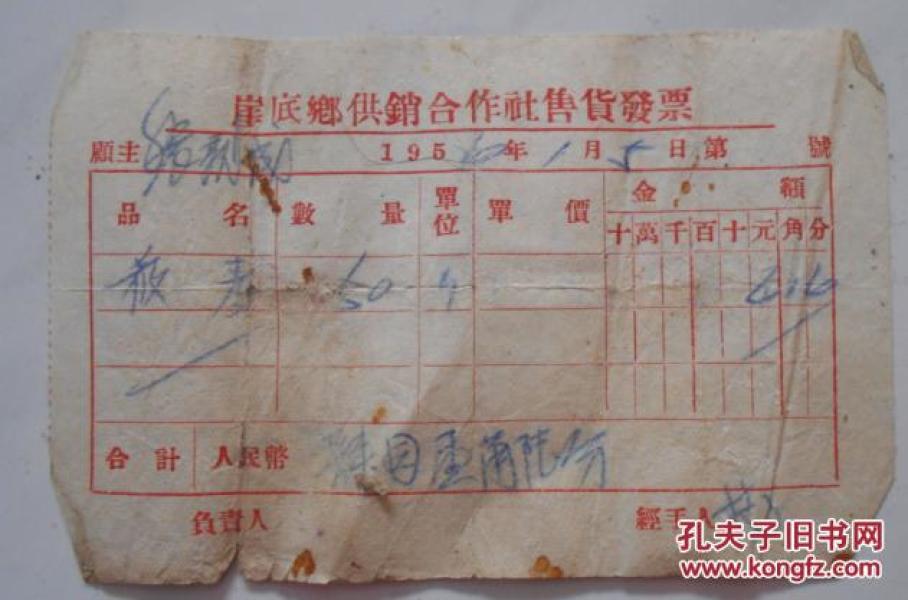 崖底鄉供銷合作社售貨發票
顧主 195 年 1 月 5 日 第 號
品名 數量 單位 單價 金額
十 萬 千 百 十 元 角 分
50 6 1 6
合計 人民幣 陸圆壹角陸分
負責人 經手人
孔夫子旧书网
www.kongfz.com